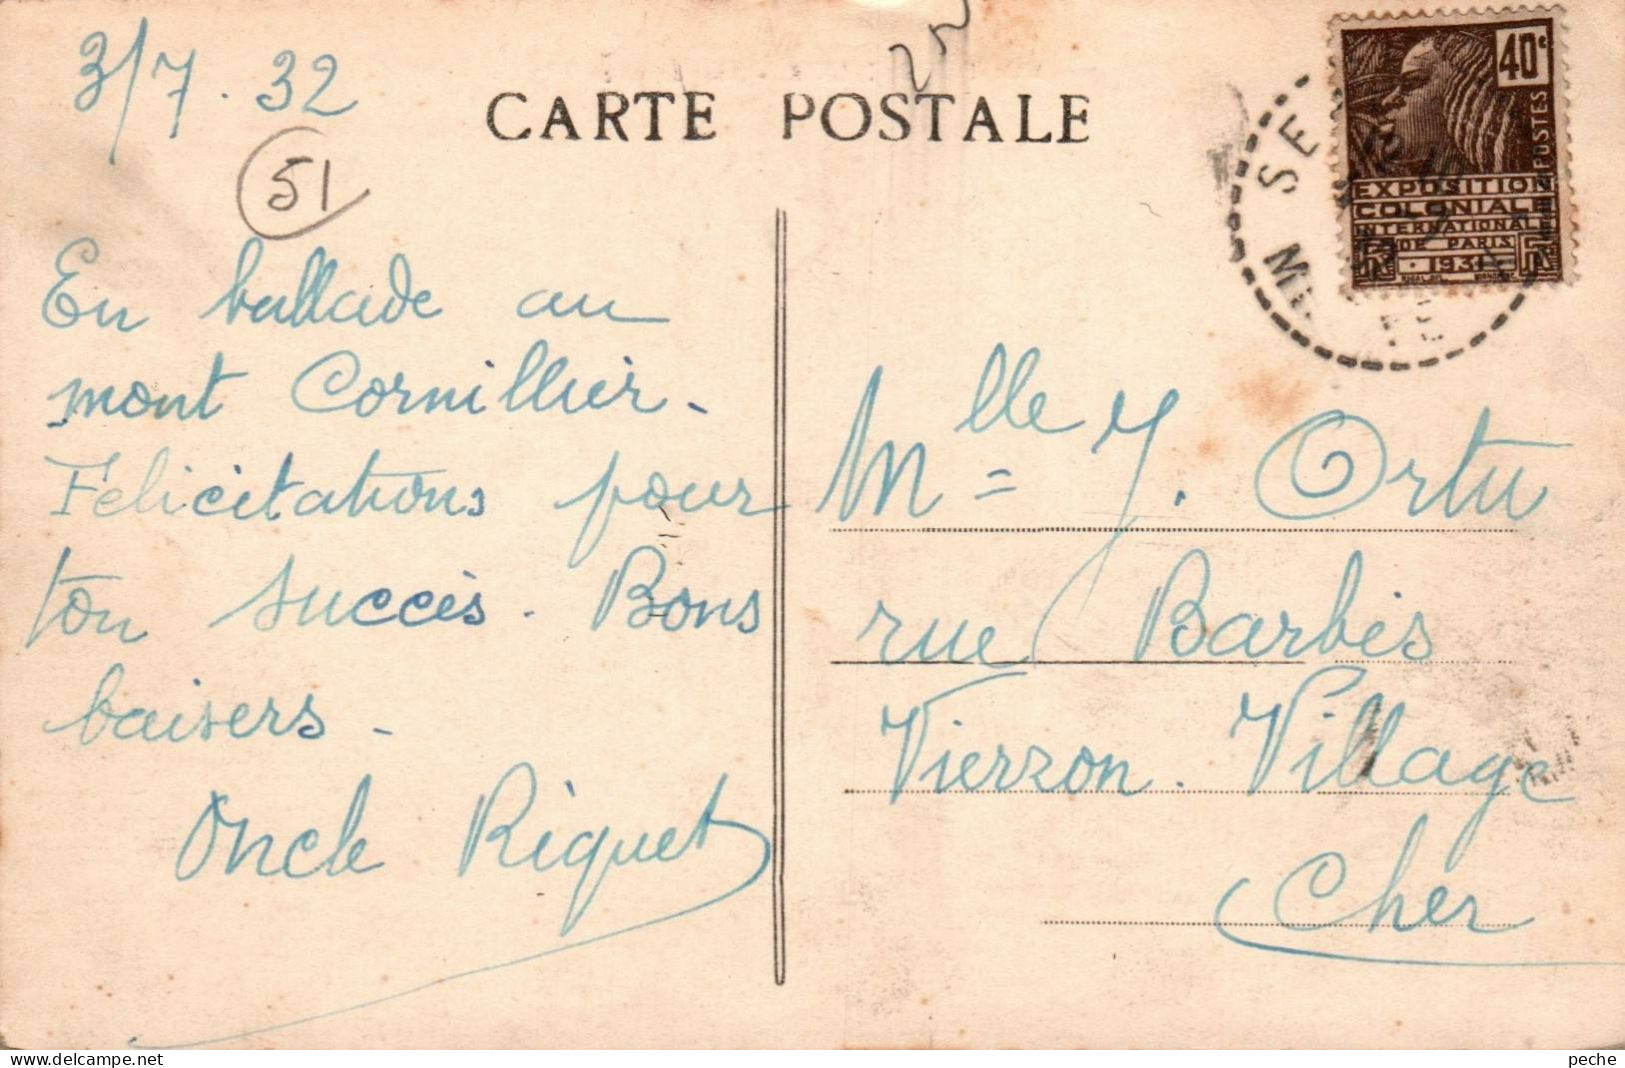 3/7.32
25
CARTE POSTALE
51
En ballade au
mont Cornillier.
Félicitations pour
ton succès. Bons
baisers.
Oncle Riquet
40c
POSTES
EXPOSITION
COLONIALE
INTERNATIONALE
DE PARIS
1931
SE
Mlle = J. Ortu
rue Barbès
Vierzon. Village
Cher
peche
www.delcampe.net